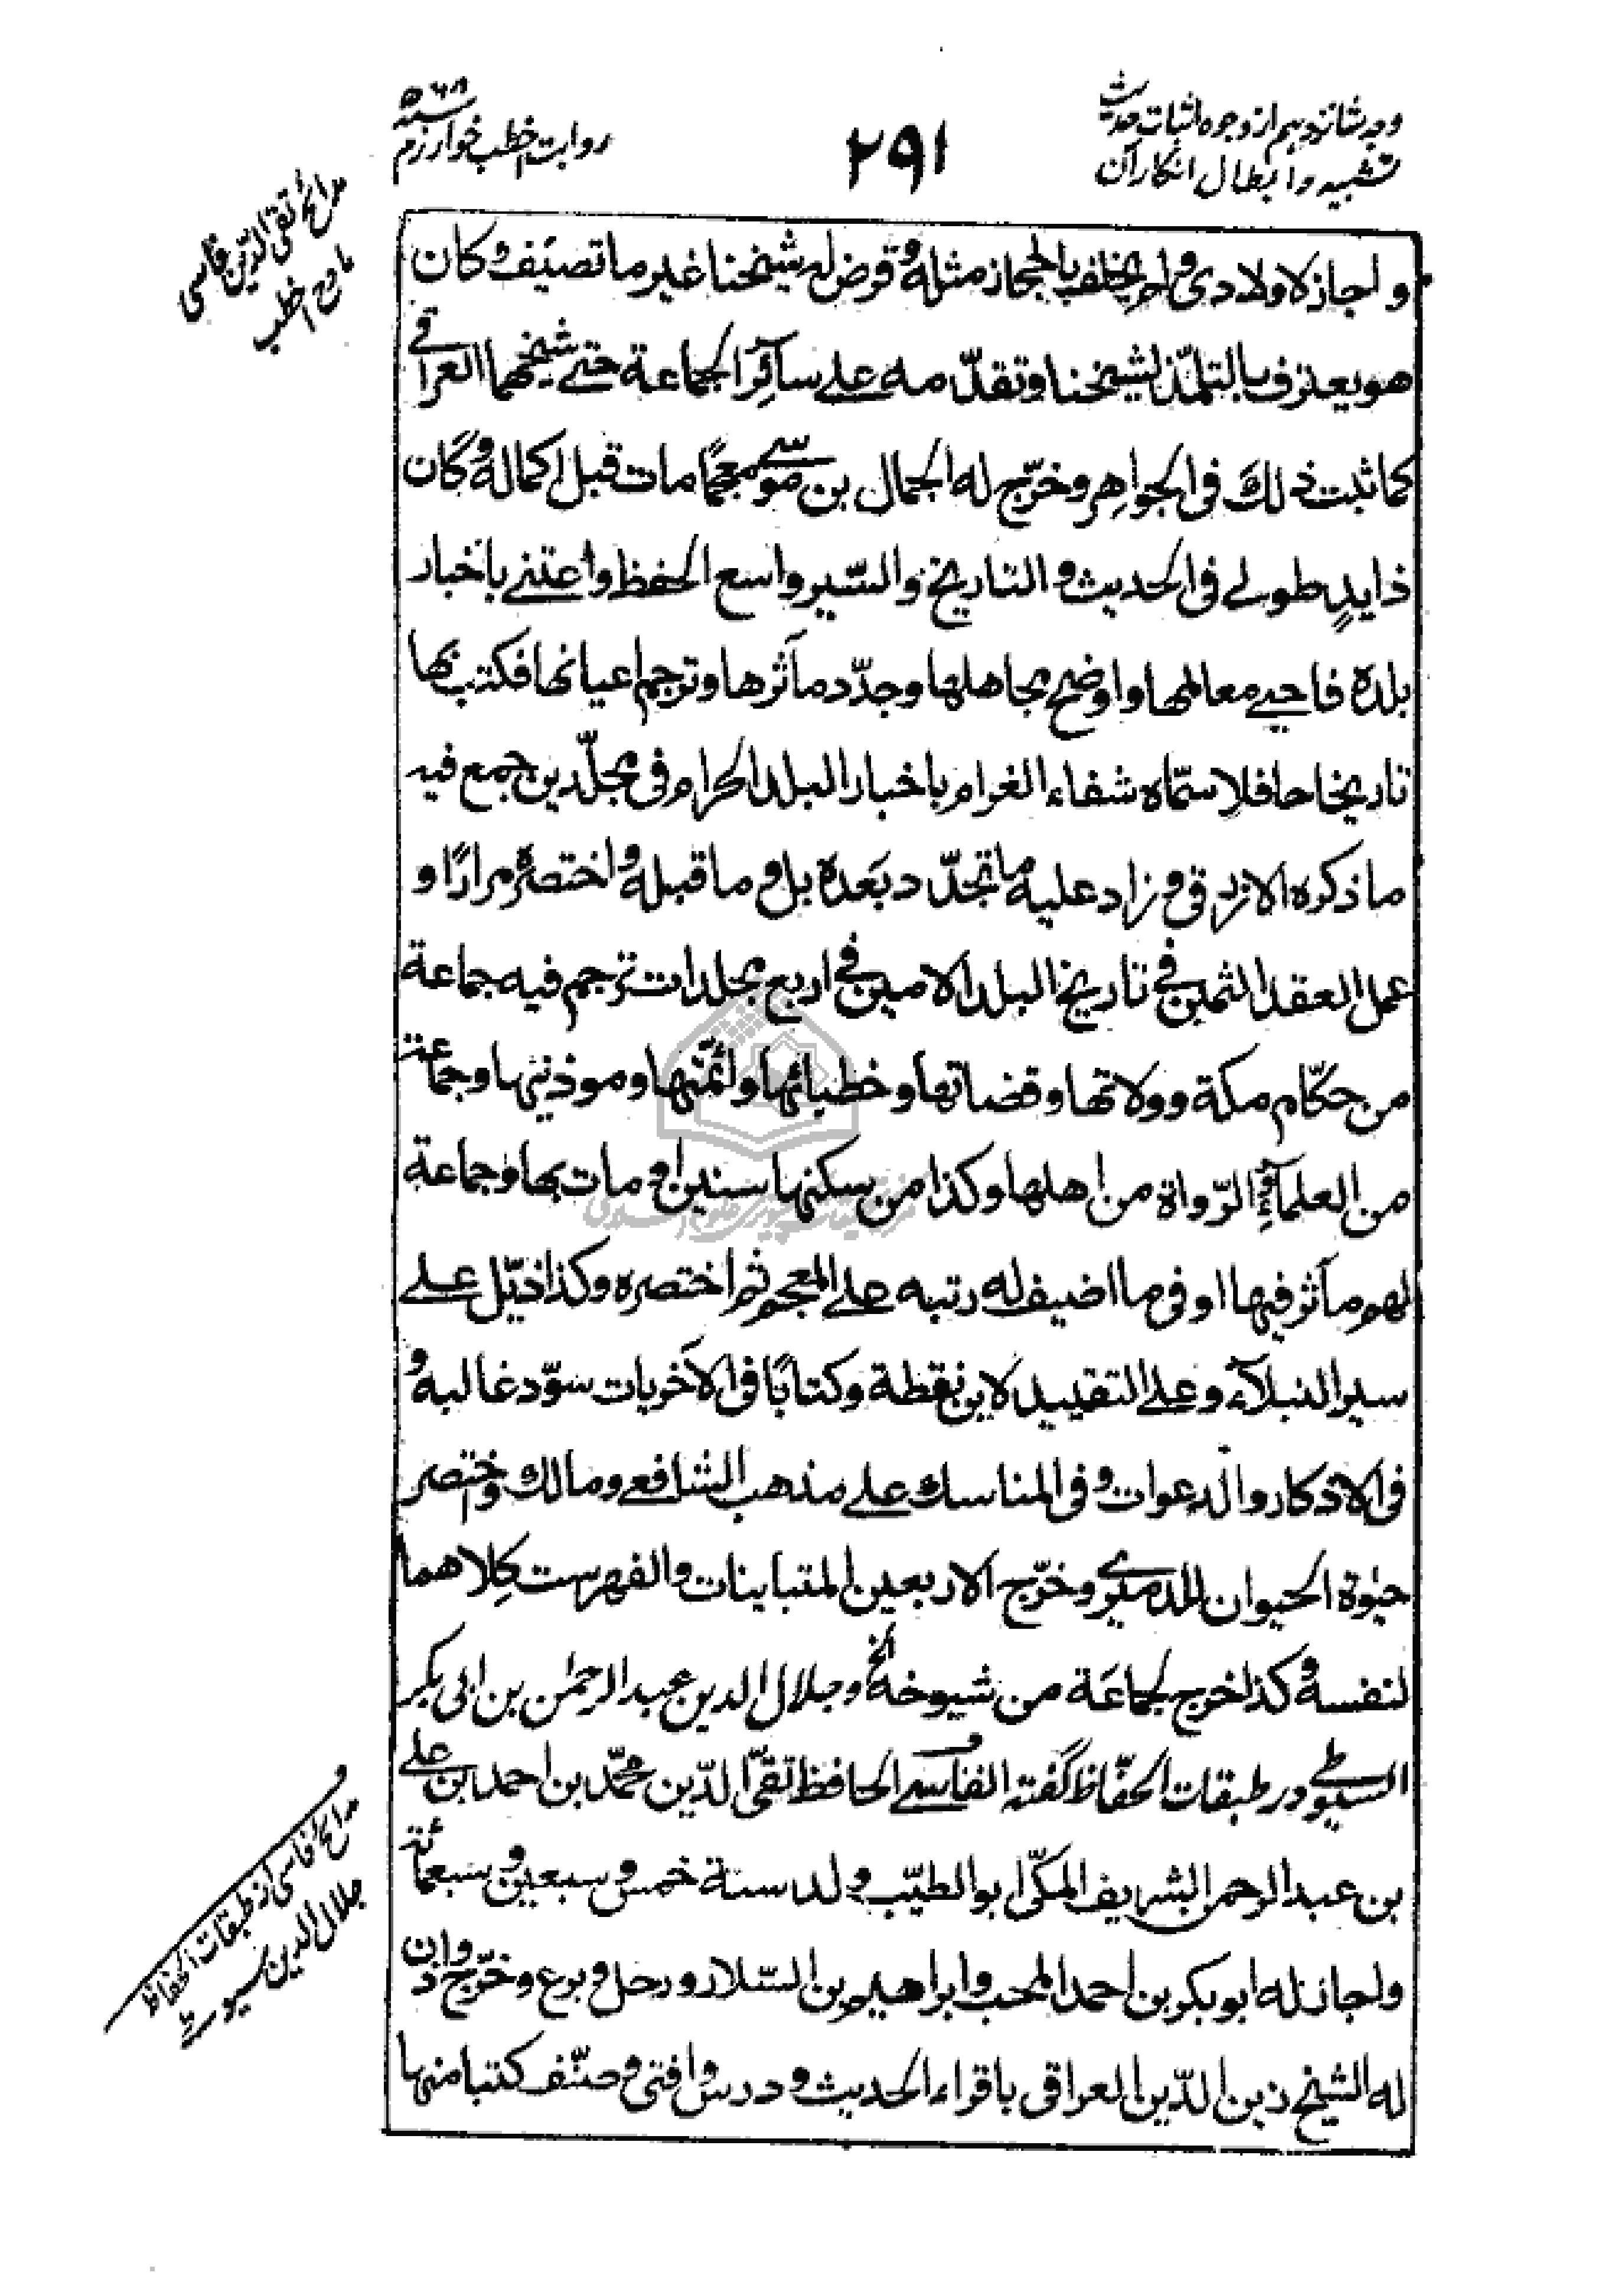 وجه شانزدهم از وجوه اثبات حدیث
تشبیه و ابطال انکار آن
۲۹۱
روایت اخطب خوارزم
سنه ۵۶۸
مدائح تقی الدّین فاسی
مادح اخطب
و اجاز لاولادی و لم یخلف بالحجاز مثله و قرض له شیخنا غیر ما تصنیف و کان
هو یعترف بالتلمّذ لشیخنا و تقدّمه علی سآئر الجماعة حتی شیخهما العراقی
کما ثبت ذلك فی الجواهر و خرّج له الجمال بن موسی معجمًا مات قبل اکماله و کان
ذا یدٍ طولی فی الحدیث و التاریخ و السّیر واسع الحفظ و اعتنی باخبار
بلده فاحیی معالمها و اوضح مجاهلها و جدّد مآثرها و ترجم اعیانها فکتب بها
تاریخا حافلا سمّاه شفاء الغرام باخبار البلد الحرام فی مجلّدین جمع فیه
ما ذکره الازرقی و زاد علیه ما تجدّد بعده بل و ما قبله و اختصره مرارًا و
عمل العقد الثمین فی تاریخ البلد الامین فی اربع مجلدات ترجم فیه جماعة
من حکّام مکة و ولاتها و قضاتها و خطبائها و ائمّتها و موذنیها و جماعة
من العلمآء و الرّواة من اهلها و کذا من سکنها سنین او مات بها و جماعة
لهم مآثر فیها او فی ما اضیف له رتبه علی المعجم ثم اختصره و کذا ذیّل علی
سیر النبلآء و علی التقیید لابن نقطة و کتابًا فی الاخریات سوّد غالبه و
فی الاذکار و الدعوات و فی المناسك علی مذهب الشافعی و مالك و اختصر
حیوة الحیوان للدمیری و خرّج الاربعین المتباینات و الفهرست کلاهما
لنفسه و کذا خرج لجماعة من شیوخه الخ و جلال الدین عبد الرحمٰن بن ابی بکر
السیوطی در طبقات الحفّاظ گفته الفاسی الحافظ تقیّ الدّین محمّد بن احمد بن علی
بن عبد الرحمن الشریف المکّی ابو الطیّب ولد سنة خمس و سبعین و سبعمائة
و اجاز له ابو بکر بن احمد المحب و ابراهیم بن السّلار و رحل و برع و خرّج و اذن
له الشیخ زین الدّین العراقی باقراء الحدیث و درس و افتی و صنّف کتبا منها
و
مدائح فاسی از طبقات الحفاظ
جلال الدین سیوطی